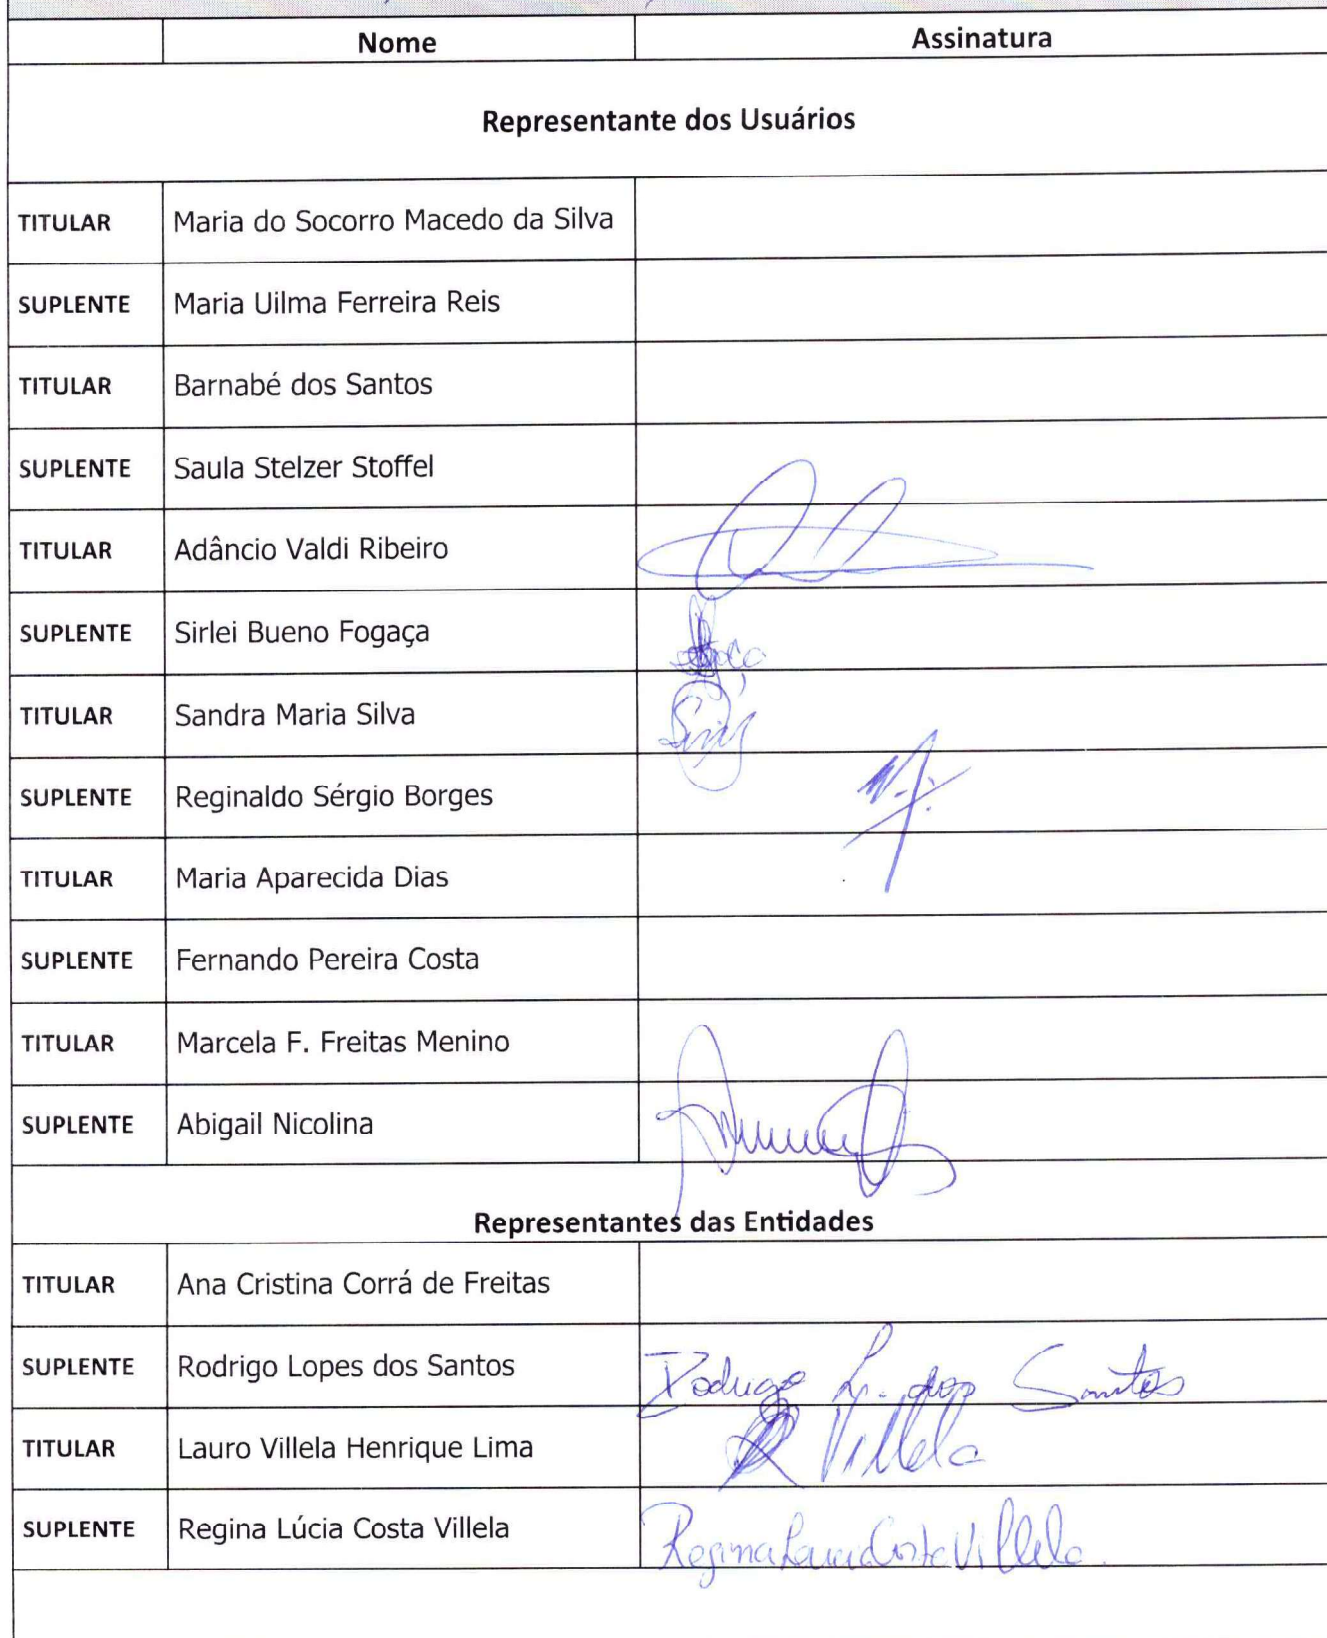 Nome Assinatura
Representante dos Usuários
TITULAR Maria do Socorro Macedo da Silva
SUPLENTE Maria Uilma Ferreira Reis
TITULAR Barnabé dos Santos
SUPLENTE Saula Stelzer Stoffel
TITULAR Adâncio Valdi Ribeiro
SUPLENTE Sirlei Bueno Fogaça
TITULAR Sandra Maria Silva
SUPLENTE Reginaldo Sérgio Borges
TITULAR Maria Aparecida Dias
SUPLENTE Fernando Pereira Costa
TITULAR Marcela F. Freitas Menino
SUPLENTE Abigail Nicolina
Representantes das Entidades
TITULAR Ana Cristina Corrá de Freitas
SUPLENTE Rodrigo Lopes dos Santos Rodrigo L. dos Santos
TITULAR Lauro Villela Henrique Lima Villela
SUPLENTE Regina Lúcia Costa Villela Regina Lucia Costa Villela